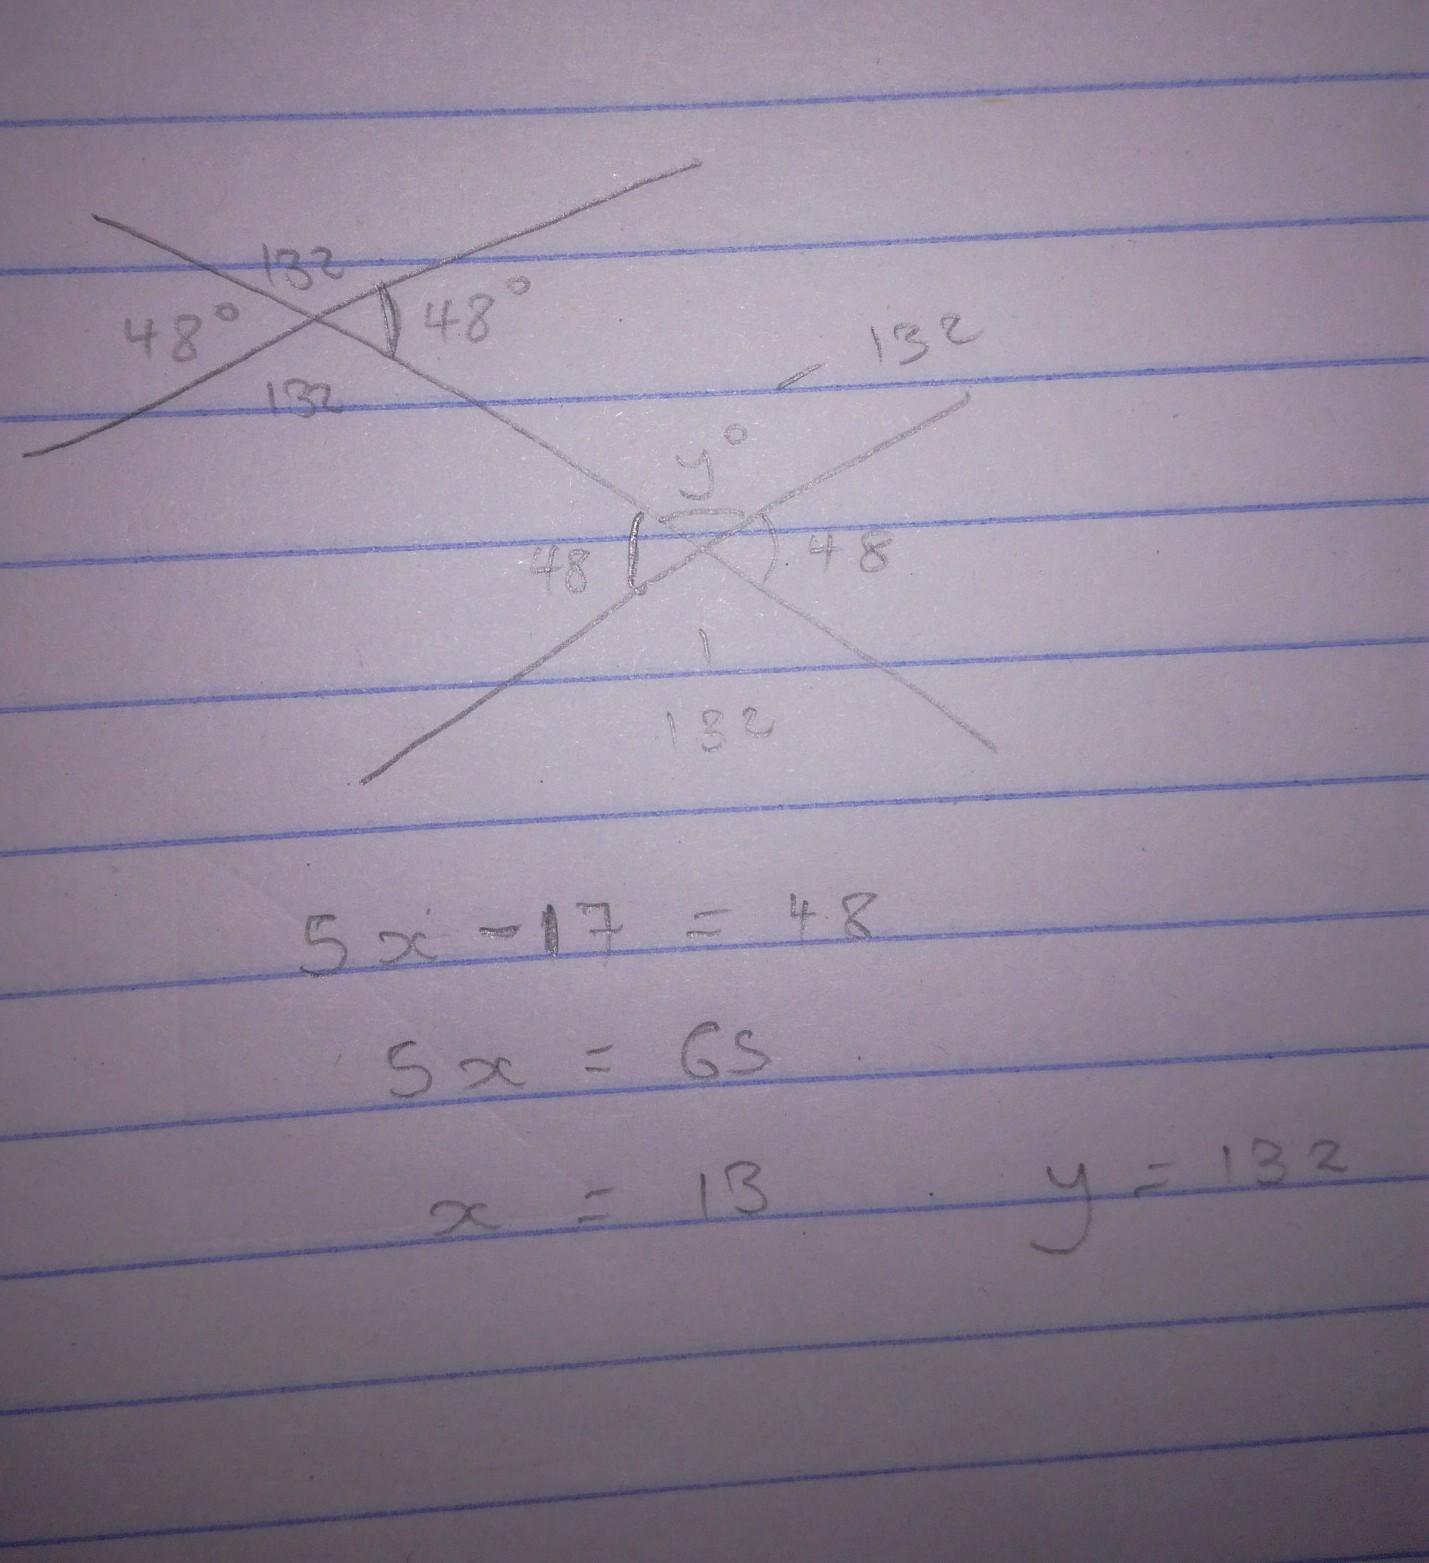 132
48°
48°
132
132
y°
48
48
132
5x - 17 = 48
5x = 65
x = 13
y = 132